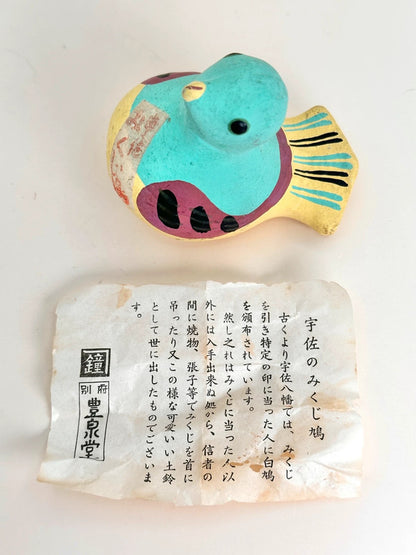 宇佐のみくじ鳩
古くより宇佐八幡では、みくじ
を引き特定の印に当った人に白鳩
を頒布されています。
然し之れはみくじに当った人以
外には入手出来ぬ処から、信者の
間に焼物、張子等でみくじを首に
吊ったり又この様な可愛いい土鈴
として世に出したものでございま
す。
鐘
別府
豊泉堂